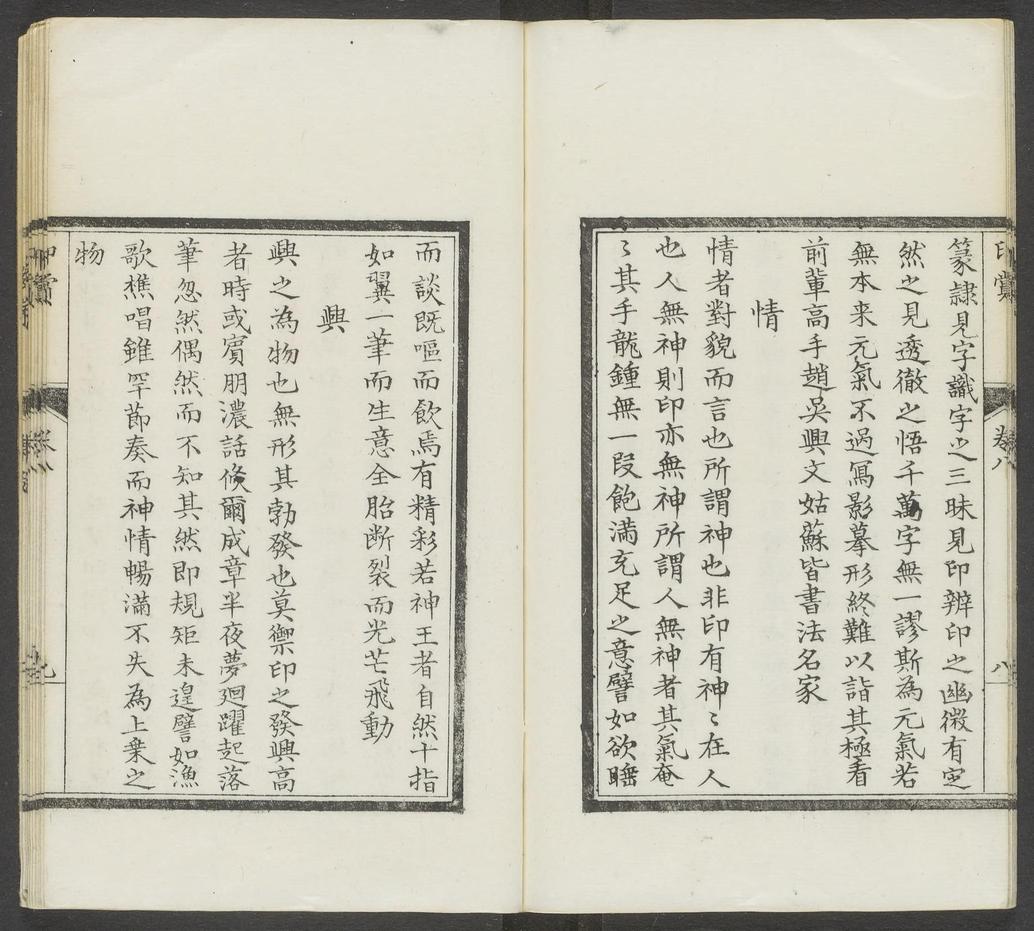 印
卷八
八
篆隸見字識字之三昧見印辨印之幽微有定
然之見透徹之悟千萬字無一謬斯為元氣若
無本来元氣不過寫影摹形終難以詣其極看
前輩高手趙吳興文姑蘇皆書法名家
情
情者對貌而言也所謂神也非印有神〻在人
也人無神則印亦無神所謂人無神者其氣奄
〻其手龍鍾無一段飽滿充足之意譬如欲睡
而談既嘔而飲焉有精彩若神王者自然十指
如翼一筆而生意全胎断裂而光芒飛動
興
興之為物也無形其勃發也莫禦印之發興高
者時或賓朋濃話倐爾成章半夜夢廻躍起落
筆忽然偶然而不知其然即規矩未遑譬如漁
歌樵唱雖罕節奏而神情暢滿不失為上乗之
物